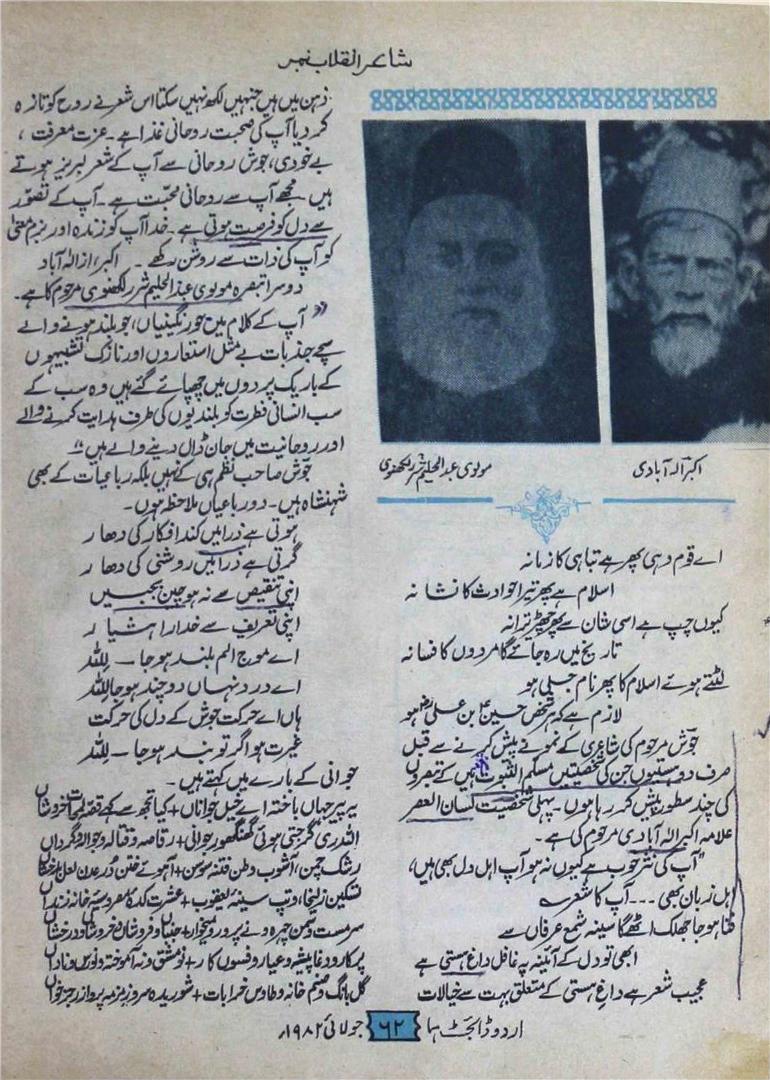 شاعر انقلاب نمبر
اکبر الہ آبادی
مولوی عبدالحلیم شرر لکھنوی
اے قوم وہی پھر ہے تباہی کا زمانہ
اسلام ہے پھر تیر حوادث کا نشانہ
کیوں چپ ہے اسی شان سے پھر چھیڑ ترانہ
تاریخ میں رہ جائے گا مردوں کا فسانہ
لٹتے ہوئے اسلام کا پھر نام جلی ہو
لازم ہے کہ ہر شخص حسینؑ ابن علیؑ ہو
جوش مرحوم کی شاعری کے نمونے پیش کرنے سے قبل
صرف دو ہستیوں جن کی شخصیتیں مسلم الثبوت ہیں کے تبصروں
کی چند سطور پیش کر رہا ہوں۔ پہلی شخصیت لسان العصر
علامہ اکبر الہ آبادی مرحوم کی ہے۔
"آپ کی نثر خوب ہے کیوں نہ ہو آپ اہل دل بھی ہیں،
اہل زبان بھی ۔۔۔ آپ کا شعر ؎
فنا ہو جا جھلک اٹھے گا سینہ شمع عرفاں سے
ابھی تو دل کے آئینہ پہ غافل داغ ہستی ہے
عجیب شعر ہے داغ ہستی کے متعلق بہت سے خیالات
ذہن میں ہیں جنہیں لکھ نہیں سکتا اس شعر نے روح کو تازہ
کر دیا آپ کی صحبت روحانی غذا ہے۔ عزت معرفت،
بے خودی، جوش روحانی سے آپ کے شعر لبریز ہوتے
ہیں۔ مجھے آپ سے روحانی محبت ہے۔ آپ کے تصوّر
سے دل کو فرحت ہوتی ہے۔ خدا آپ کو زندہ اور بزم معنیٰ
کو آپ کی ذات سے روشن رکھے۔ اکبر، از الہ آباد
دوسرا تبصرہ مولوی عبدالحلیم شرر لکھنوی مرحوم کا ہے۔
"آپ کے کلام میں جو رنگینیاں، جو بلند ہونے والے
سچے جذبات بے مثل استعاروں اور نازک تشبیہوں
کے باریک پردوں میں چھپائے گئے ہیں وہ سب کے
سب انسانی فطرت کو بلندیوں کی طرف ہدایت کرنے والے
اور روحانیت میں جان ڈال دینے والے ہیں"
جوش صاحب نظم ہی کے نہیں بلکہ رباعیات کے بھی
شہنشاہ ہیں۔ دو رباعیاں ملاحظہ ہوں۔
ہوتی ہے ذرا میں کند افکار کی دھار
گرتی ہے ذرا میں روشنی کی دھار
اپنی تنقیص سے نہ ہو چین بجبیں
اپنی تعریف سے خدارا ہشیار
اے موج الم بلند ہو جا ۔ للہ
اے درد نہاں دوچند ہو جا للہ
ہاں اے حرکت جوش کے دل کی حرکت
غیرت ہو اگر تو بند ہو جا ۔ للہ
جوانی کے بارے میں کہتے ہیں۔
یہ پیر جہاں باختہ اے خیل جواناں + کیا تجھ سے کہے
اللہ ری گرجتی ہوئی گھنگھور جوانی + رقاصہ و قتالہ و جوالہ و گرداں
رشک چمن، آشوب وطن فتنہ موسن + آہوئے ختن دُر عدن لعل بدخشاں
تسکین زلیخا، و تپ سینۂ یعقوب + عشرت کدۂ مصر و سیہ خانہ زنداں
سرمست و
پرکار و دغا پیشہ و عیار و فسوں کار + نو مشق و نہ آموختہ و نو رس و ناداں
گل بانگ و صنم خانہ و طاؤس خرابات + شوریدہ سر و زمزمہ پرداز و رجز خواں
اردو ڈائجسٹ ہما ۶۲ جولائی ۱۹۸۲ء